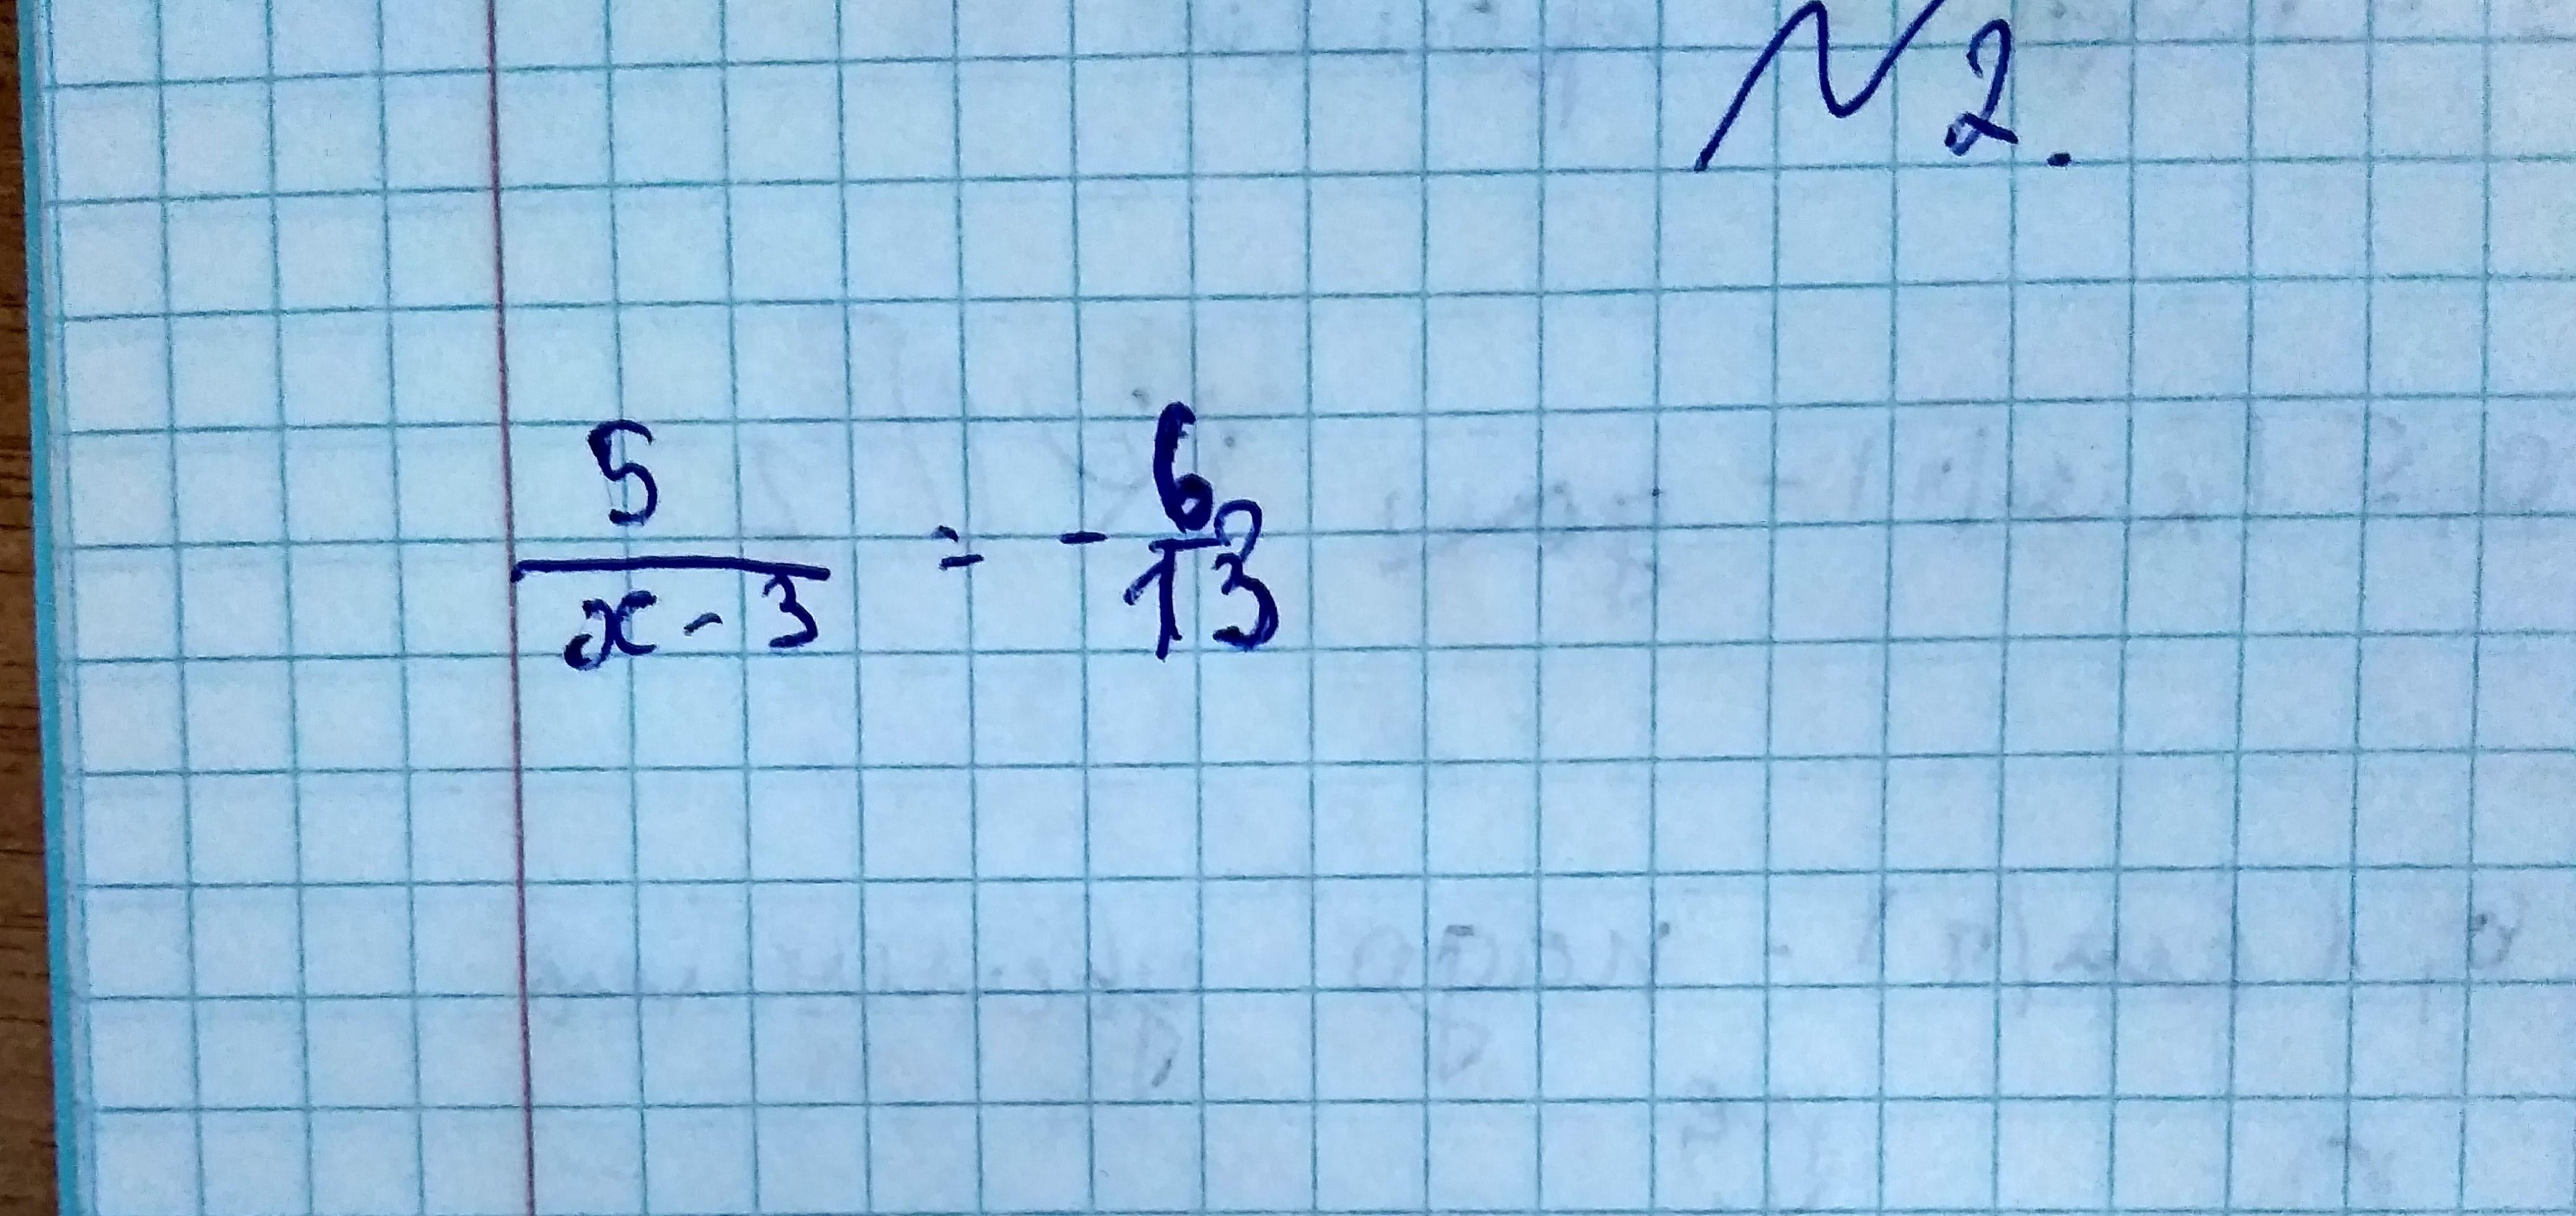 N 2.
5/(x - 3) = - 6/13